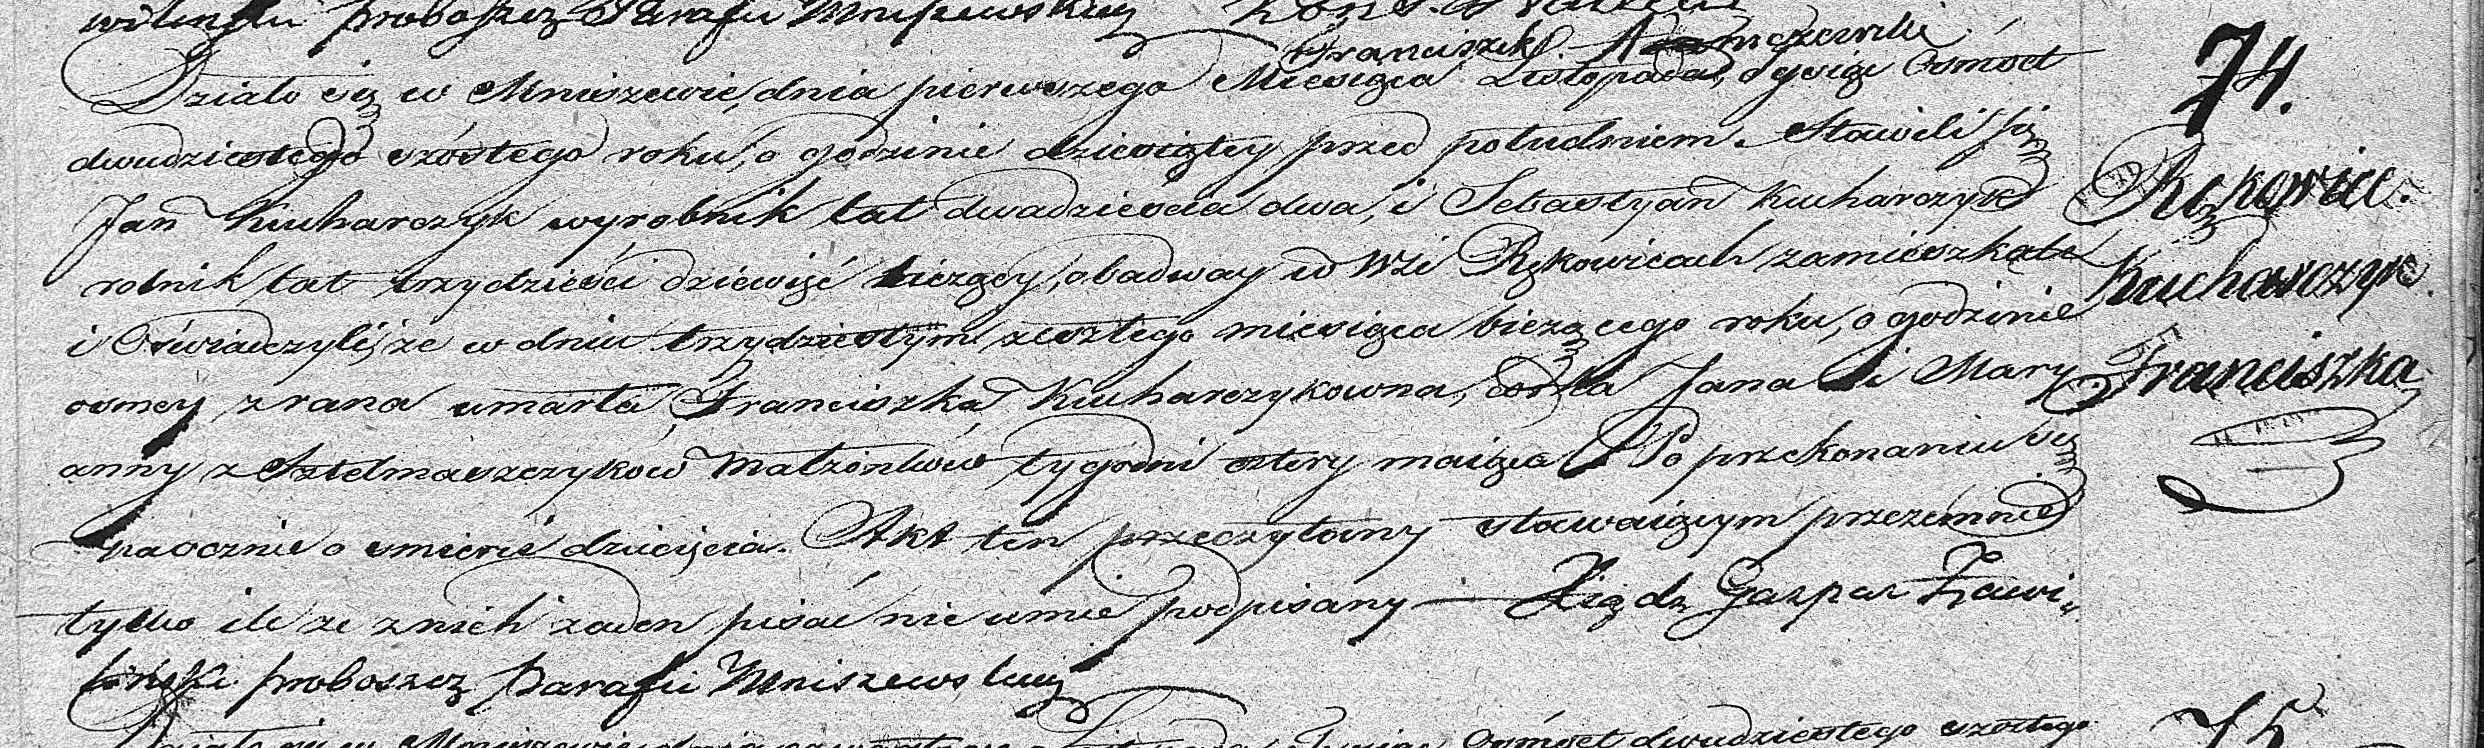 proboszcz Parafii Mniszewskiey
Franciszek
Działo się w Mniszewie, dnia pierwszego Miesiąca Listopada, tysiąc Osmset
dwudziestego szóstego roku, o godzinie dziesiątey przed południem. Stawili się
Jan Kucharczyk wyrobnik lat dwadzieścia dwa, i Sebastyan Kucharczyk
rolnik lat trzydzieści dziewięć liczący, obadway w Wsi Rękowicach zamieszkałe
i Oświadczyli, że w dniu trzydziestym zeszłego miesiąca bieżącego roku, o godzinie
osmey z rana umarła Franciszka Kucharczykowna, córka Jana i Mary
anny z Sztelmaszczyków Małżonków tygodni cztery maiąca Po przekonaniu się
naocznie o śmierci dziecięcia. Akt ten przeczytany stawaiącym przezemnie
tylko ile że z nich żaden pisać nie umie podpisany — Xiądz Gaspar Zawi„
proboszcz Parafii Mniszewskiey
74.
Rękowice.
Kucharczyk
Franciszka
75